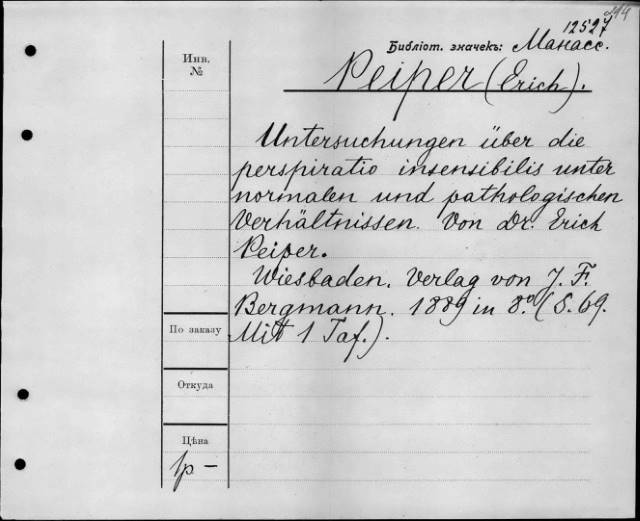 12527
Библіот. значекъ: Манасс.
Инв.
№
Peiper (Erich).
Untersuchungen über die
perspiratio insensibilis unter
normalen und pathologischen
Verhältnissen. Von Dr. Erich
Peiper.
Wiesbaden. Verlag von J. F.
Bergmann. 1889 in 8.° (S. 69.
Mit 1 Taf.).
По заказу
Откуда
Цѣна
1р –